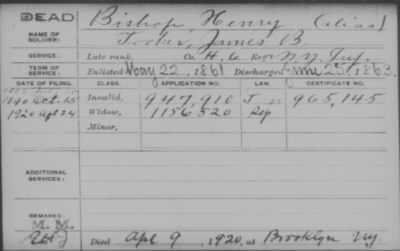 DEAD
NAME OF SOLDIER: Bishop Henry (alias)
Tooker, James B.
SERVICE: Late rank, Co. H, 6 Reg't N.Y. Inf.
TERM OF SERVICE: Enlisted May 22, 1861 Discharged June 25, 1863
DATE OF FILING. CLASS. APPLICATION NO. LAW. CERTIFICATE NO.
1890 Oct. 15 Invalid, 947,910 J 965,145
1920 Apl 24 Widow, 1156520 Rep
Minor,
ADDITIONAL SERVICES:
REMARKS:
Died Apl 9, 1920, at Brooklyn N.Y.